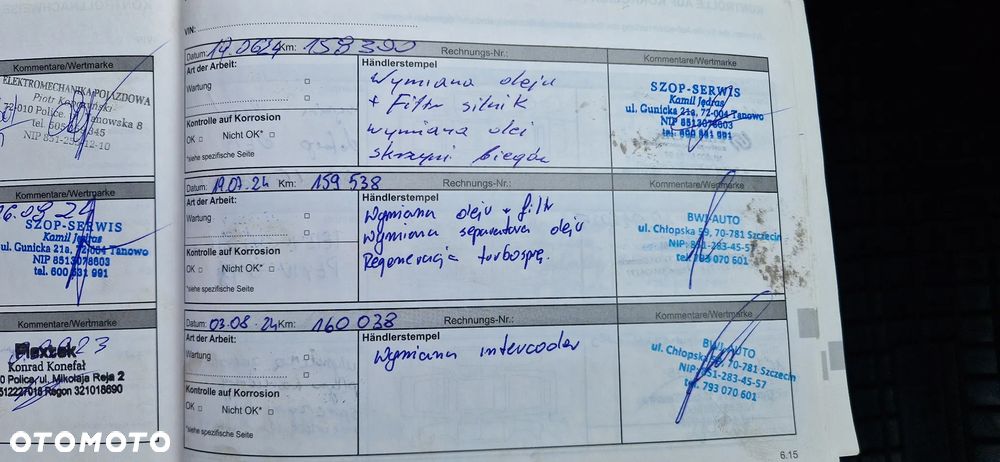 Kommentare/Wertmarke
ELEKTROMECHANIKA POJAZDOWA
Piotr
72-010 Police, Tanowska 8
NIP 851-25
Kommentare/Wertmarke
SZOP-SERWIS
Kamil Jędras
ul. Gunicka 21a, 72-004 Tanowo
NIP 8513078603
tel. 600 831 991
Kommentare/Wertmarke
Flextek
Konrad Konefał
Police, ul. Mikołaja Reja 2
Regon 321018690
VIN:
Datum: 17.06.24 Km: 159 390 Rechnungs-Nr.:
Art der Arbeit:
Wartung
Kontrolle auf Korrosion
OK Nicht OK*
*siehe spezifische Seite
Händlerstempel
Wymiana oleju
+ Filtr silnik
wymiana olej
skrzyni biegów
Kommentare/Wertmarke
SZOP-SERWIS
Kamil Jędras
ul. Gunicka 21a, 72-004 Tanowo
NIP 8513078603
tel. 600 831 991
Datum: 19.07.24 Km: 159 538 Rechnungs-Nr.:
Art der Arbeit:
Wartung
Kontrolle auf Korrosion
OK Nicht OK*
*siehe spezifische Seite
Händlerstempel
Wymiana oleju + filtr
Wymiana separatora oleju
Regeneracja turbosprę.
Kommentare/Wertmarke
BWJ-AUTO
ul. Chłopska 59, 70-781 Szczecin
NIP: 851-283-45-57
tel. 793 070 601
Datum: 03.08.24 Km: 160 038 Rechnungs-Nr.:
Art der Arbeit:
Wartung
Kontrolle auf Korrosion
OK Nicht OK*
*siehe spezifische Seite
Händlerstempel
Wymiana intercooler
Kommentare/Wertmarke
BWJ-AUTO
ul. Chłopska 59, 70-781 Szczecin
NIP: 851-283-45-57
tel. 793 070 601
6.15
OTOMOTO